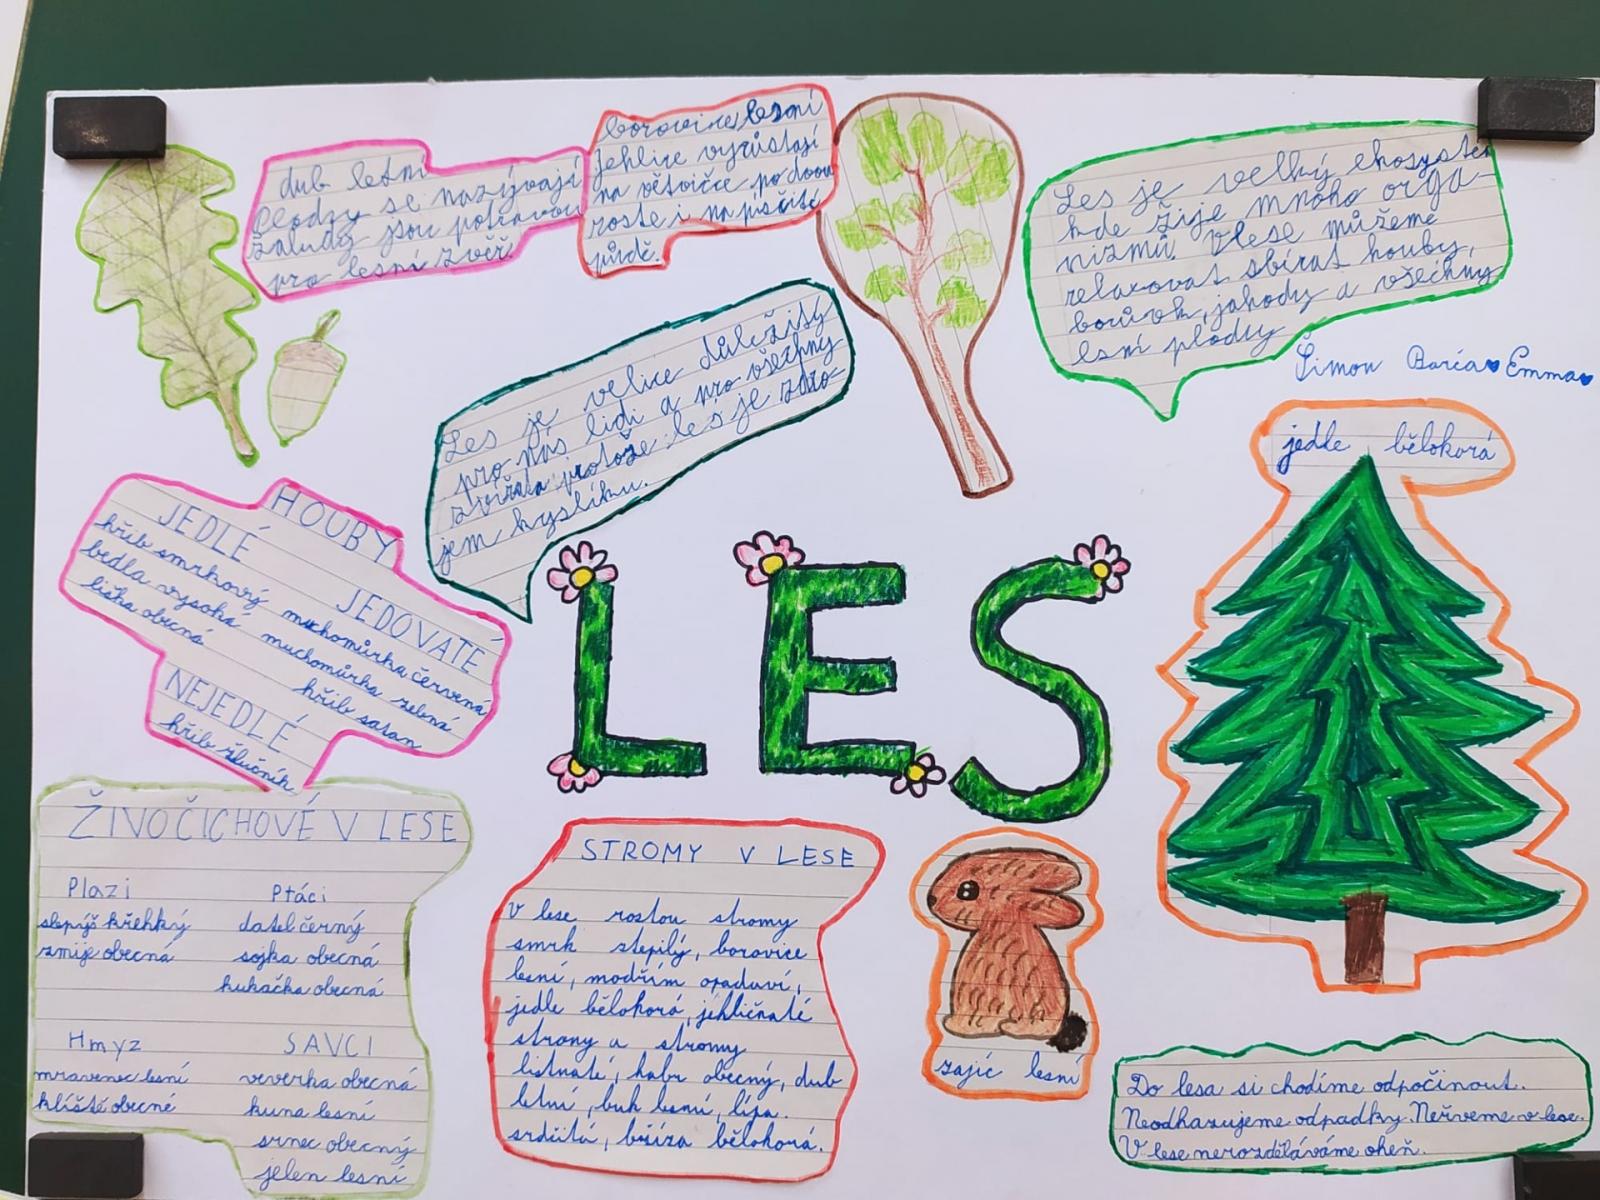 dub letní
Plody se nazývají
žaludy jsou potravou
pro lesní zvěř.
borovice lesní
Jehlice vyrůstají
na větvičce po dvou
roste i na písčité
půdě.
Les je velký ekosystém
kde žije mnoho orga-
nizmů. V lese můžeme
relaxovat sbírat houby,
borůvk, jahody a všechny
lesní plody
Šimon Barča♥ Emma♥
Les je velice důležitý
pro nás lidi a pro všechny
zvířata protože les je zdro-
jem kyslíku.
jedle bělokorá
HOUBY
JEDLÉ
hřib smrkový
bedla vysoká
liška obecná
JEDOVATÉ
muchomůrka červená
muchomůrka zelená
hřib satan
NEJEDLÉ
hřib žlučník
LES
ŽIVOČICHOVÉ V LESE
Plazi
slepýš křehký
zmije obecná
Ptáci
datel černý
sojka obecná
kukačka obecná
Hmyz
mravenec lesní
klíště obecné
SAVCI
veverka obecná
kuna lesní
srnec obecný
jelen lesní
STROMY V LESE
V lese rostou stromy
smrk stepilý, borovice
lesní, modřím opadaví,
jedle bělokorá, jehličnaté
strony a stromy
listnaté, habr obecný, dub
letní, buk lesní, lípa.
srdčitá, bříza bělokorá.
zajíc lesní
Do lesa si chodíme odpočinout.
Neodhazujeme odpadky. Neřveme v lese.
V lese nerozděláváme oheň.